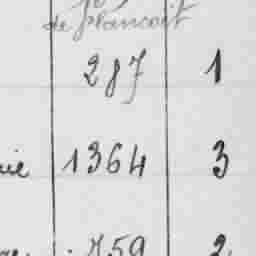 de plancoit
287 1
1364 3
759 2